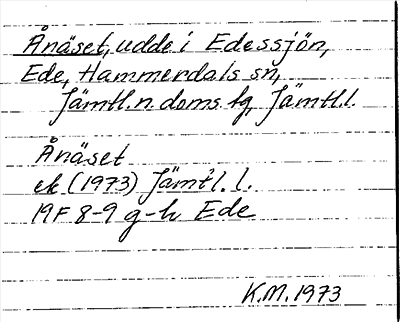 Ånäset, udde i Edessjön,
Ede, Hammerdals sn,
Jämtl. n. doms. tg, Jämtl. l.
Ånäset
ek (1973) Jämtl. l.
19F 8-9 g-h Ede
K.M. 1973